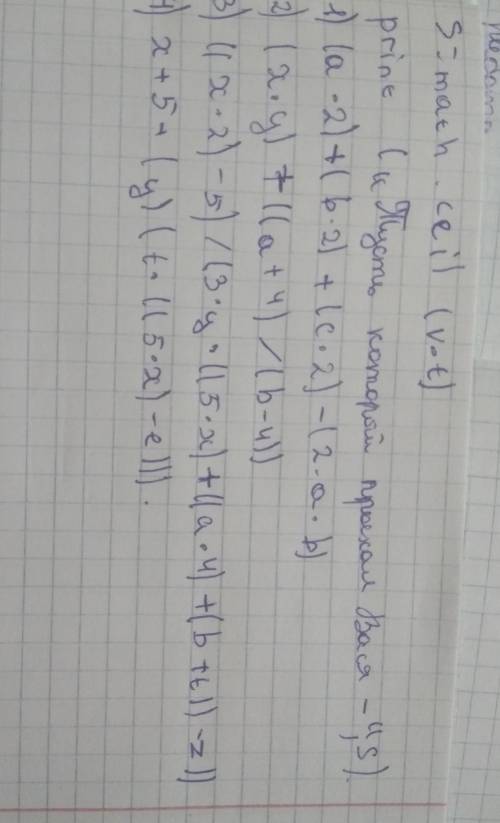 S = math . ceil (v·t)
print ("Пусть который проехал Вася – ", S).
1) (a·2)+(b·2)+(c·2)-(2·a·b)
2) (x·y)+((a+4)/(b-4))
3) ((x·2)-5)/(3·y·((5·x)+((a·4)+(b+t))-z))
4) x+5+(y)(t·((5·x)-e))).